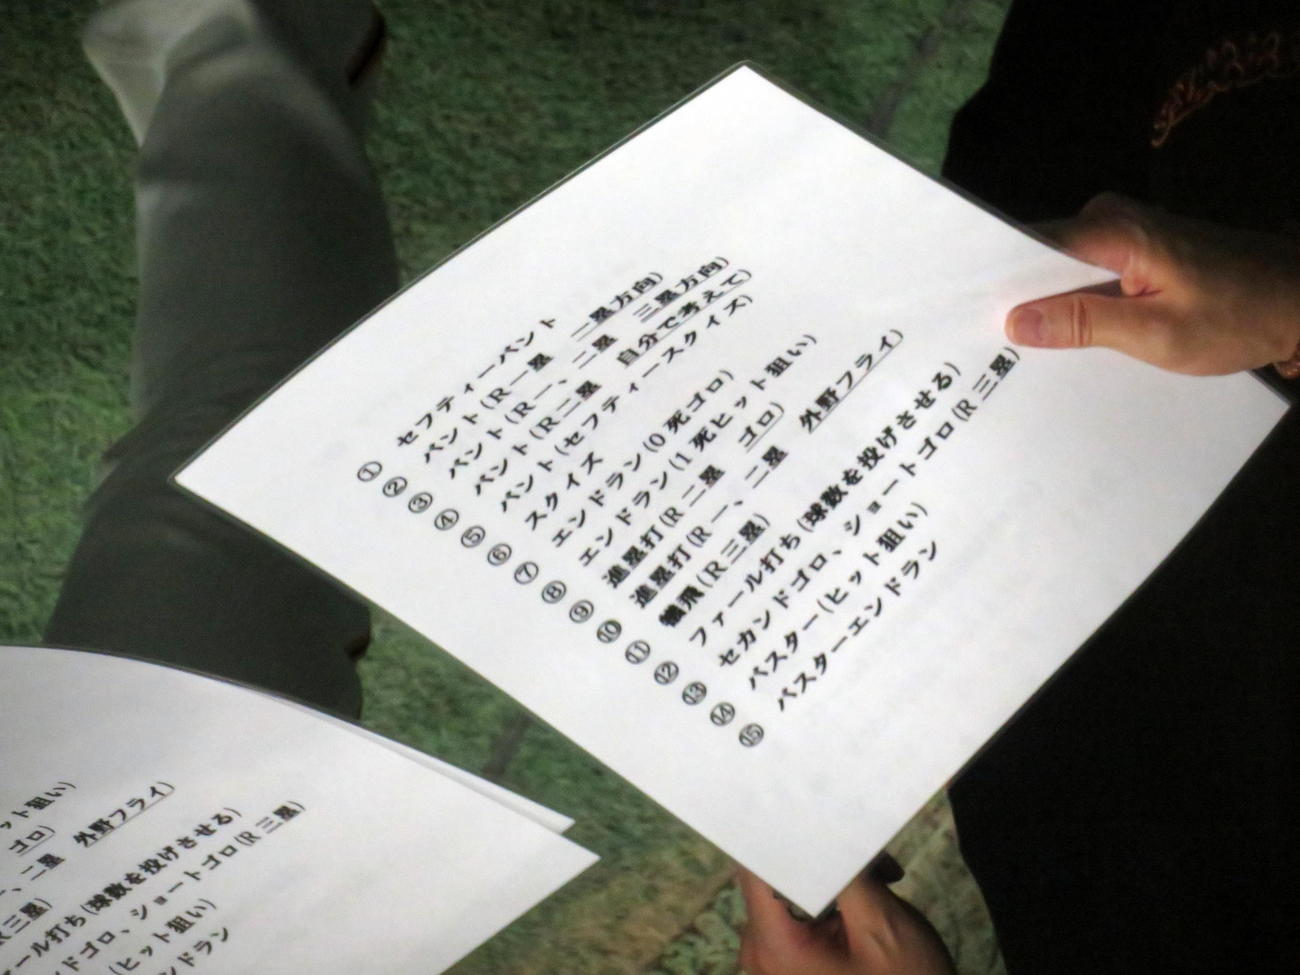 ① セフティーバント
② バント(R一塁 二塁方向)
③ バント(R一、二塁 三塁方向)
④ バント(R二塁 自分で考えて)
⑤ バント(セフティースクイズ)
⑥ スクイズ
⑦ エンドラン(0死ゴロ)
⑧ エンドラン(1死ヒット狙い)
⑨ 進塁打(R二塁 ゴロ)
⑩ 進塁打(R一、二塁 外野フライ)
⑪ 犠飛(R三塁)
⑫ ファール打ち(球数を投げさせる)
⑬ セカンドゴロ、ショートゴロ(R三塁)
⑭ バスター(ヒット狙い)
⑮ バスターエンドラン
ット狙い)
ゴロ)
、二塁 外野フライ)
R三塁)
ール打ち(球数を投げさせる)
ドゴロ、ショートゴロ(R三塁)
(ヒット狙い)
ンドラン